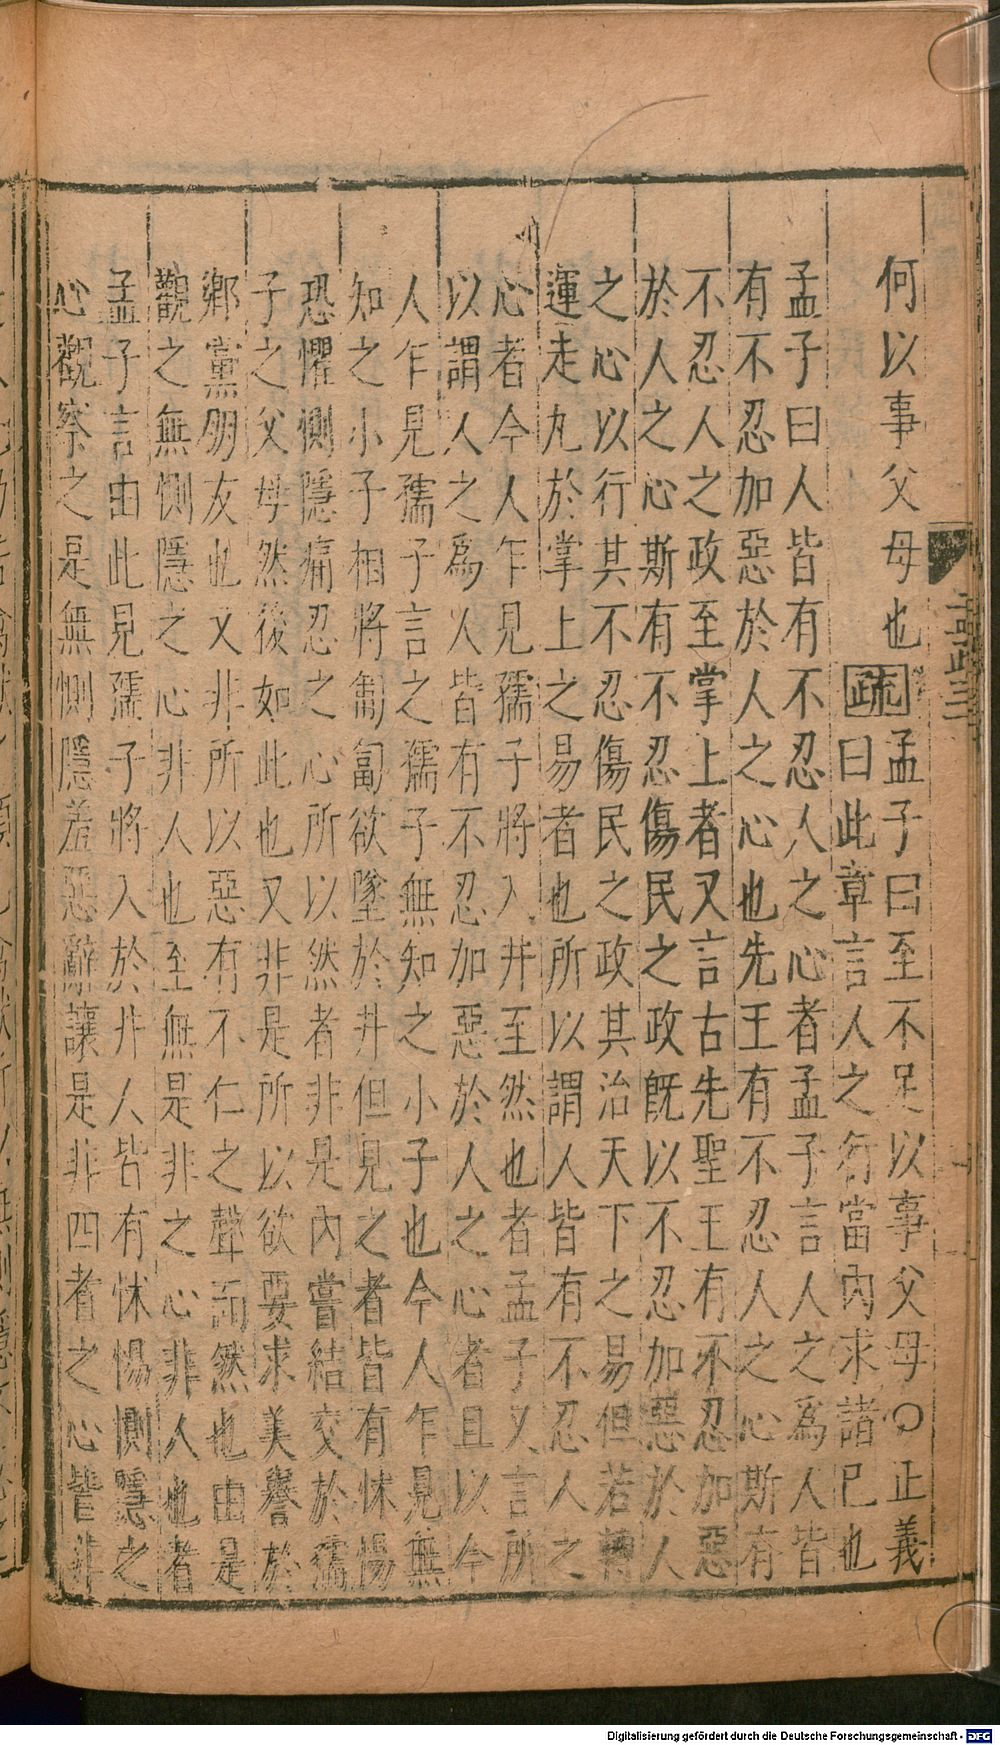 何以事父母也疏孟子曰至不足以事父母○正義
曰此章言人之行當內求諸已也
孟子曰人皆有不忍人之心者孟子言人之為人皆
有不忍加惡於人之心也先王有不忍人之心斯有
不忍人之政至掌上者又言古先聖王有不忍加惡
於人之心斯有不忍傷民之政旣以不忍加惡於人
之心以行其不忍傷民之政其治天下之易但若轉
運走丸於掌上之易者也所以謂人皆有不忍人之
心者今人乍見孺子將入井至然也者孟子又言所
以謂人之為人皆有不忍加惡於人之心者且以今
人乍見孺子言之孺子無知之小子也今人乍見無
知之小子相將匍匐欲墜於井但見之者皆有怵惕
恐懼惻隱痛忍之心所以然者非是內嘗結交於孺
子之父母然後如此也又非是所以欲要求美譽於
鄉黨朋友也又非所以惡有不仁之聲而然也由是
觀之無惻隱之心非人也至無是非之心非人也者
孟子言由此見孺子將入於井人皆有怵惕惻隱之
心觀察之是無惻隱羞惡辭讓是非四者之心皆非
Digitalisierung gefördert durch die Deutsche Forschungsgemeinschaft - DFG